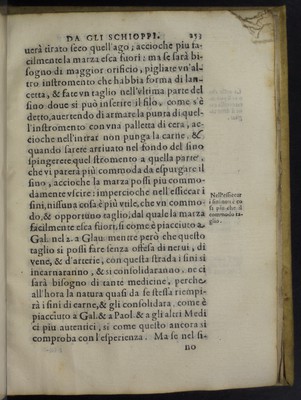 DA GLI SCHIOPPI. 253
uerà tirato seco quell'ago; accioche piu fa-
cilmente la marza esca fuori: ma se sarà bi-
sogno di maggior orificio, pigliate vn'al-
tro instromento che habbia forma di lan-
cetta, & fate vn taglio nell'vltima parte del
sino doue si può inserire il filo, come s'è
detto, auertendo di armare la punta di quel-
l'instromento con vna palletta di cera, ac-
cioche nell'intrar non punga la carne. &
quando sarete arriuato nel fondo del sino
spingerete quel stromento a quella parte,
che vi parerà più commoda da espurgare il
sino, acciòche la marza possi piu commo-
damente vscire: impercioche nell'essiccar i
sini, nissuna cosa è più vtile, che vn commo-
do, & opportuno taglio; dal quale la marza
facilmente esca fuori, si come è piacciuto a
Gal. nel 2. a Glau. mentre però che questo
taglio si possi fare senza offesa di nerui, di
vene, & d'arterie, con questa strada i sini si
incarnaranno, & si consolidaranno. ne ci
sarà bisogno di tante medicine, perche
all'hora la natura quasi da se stessa riempi-
rà i sini di carne, & gli consolidara. come è
piacciuto a Gal. & a Paol. & a gli altri Medi
ci più autentici, si come questo ancora si
comproba con l'esperienza. Ma se nel si-
no
Nell'essiccar
i sini non è co
sa più che il
commodo ta-
glio.